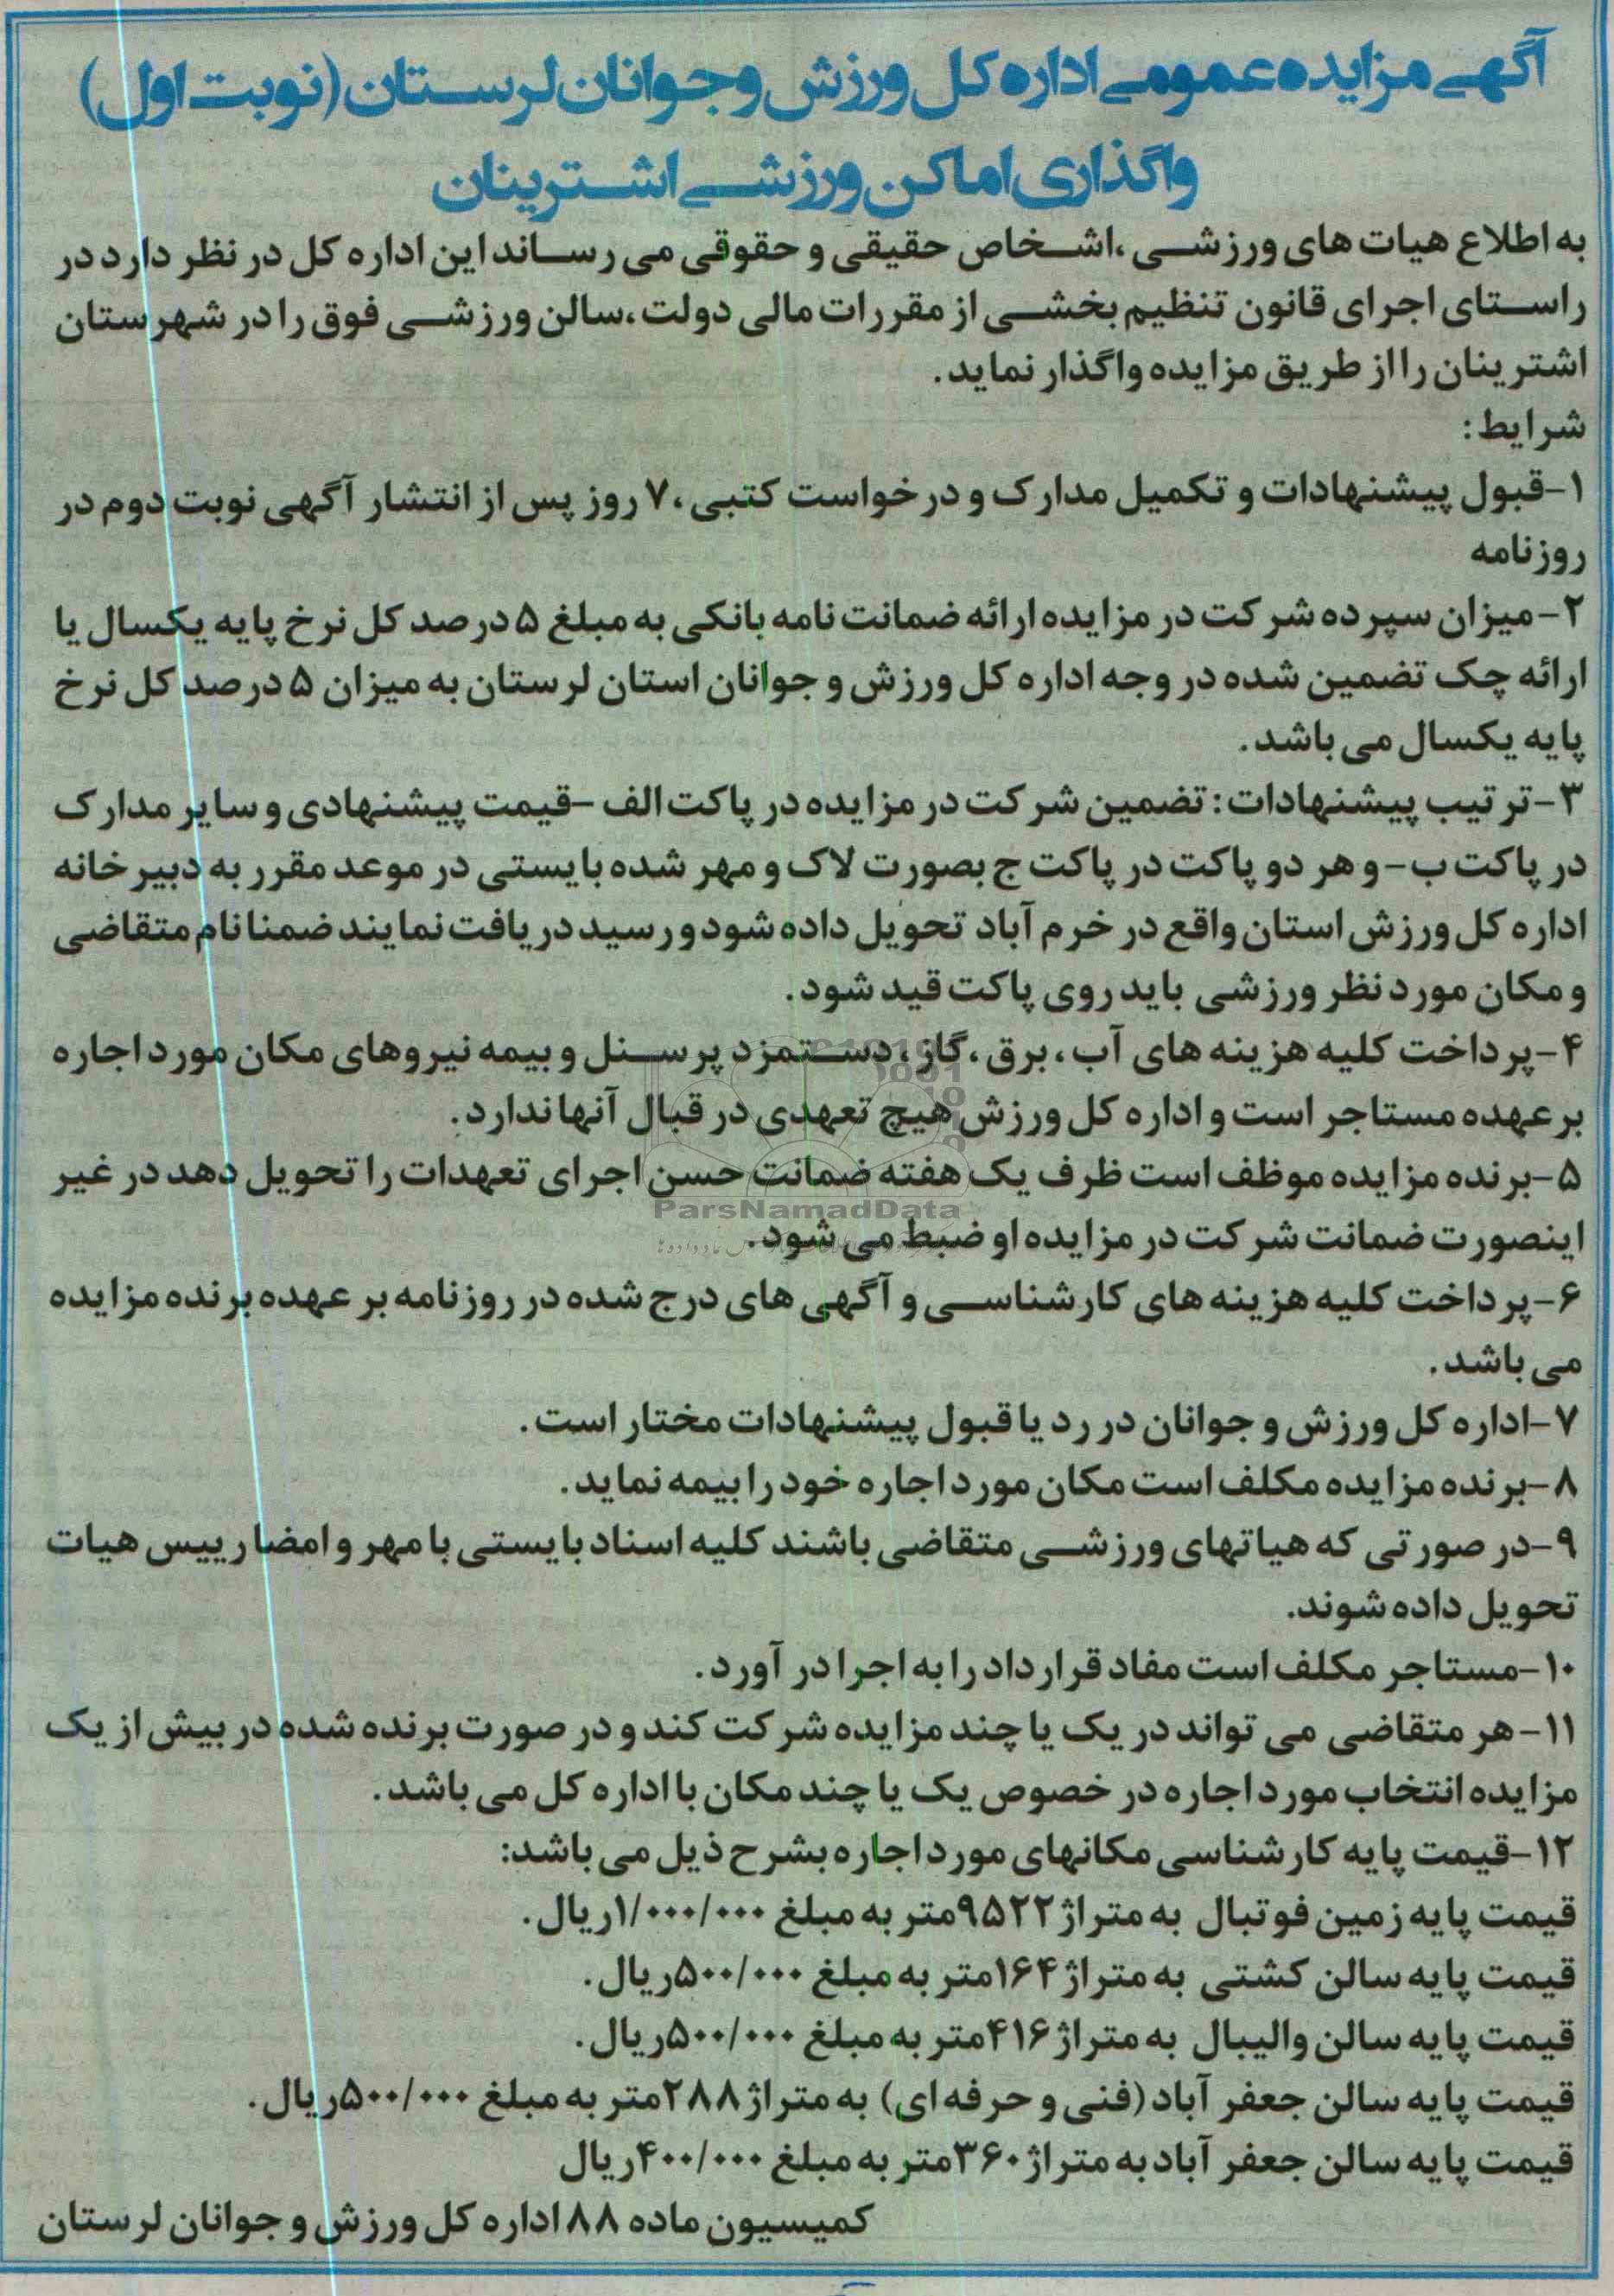 آگهی مزایده عمومی اداره کل ورزش و جوانان لرستان (نوبت اول)
واگذاری اماکن ورزشی اشترینان
به اطلاع هیات های ورزشی ،اشخاص حقیقی و حقوقی می رساند این اداره کل در نظر دارد در
راستای اجرای قانون تنظیم بخشی از مقررات مالی دولت ،سالن ورزشی فوق را در شهرستان
اشترینان را از طریق مزایده واگذار نماید.
شرایط :
۱-قبول پیشنهادات و تکمیل مدارک و درخواست کتبی ،۷ روز پس از انتشار آگهی نوبت دوم در
روزنامه
۲-میزان سپرده شرکت در مزایده ارائه ضمانت نامه بانکی به مبلغ ۵ درصد کل نرخ پایه یکسال یا
ارائه چک تضمین شده در وجه اداره کل ورزش و جوانان استان لرستان به میزان ۵ درصد کل نرخ
پایه یکسال می باشد.
۳-ترتیب پیشنهادات : تضمین شرکت در مزایده در پاکت الف -قیمت پیشنهادی و سایر مدارک
در پاکت ب- و هر دو پاکت در پاکت ج بصورت لاک و مهر شده بایستی در موعد مقرر به دبیرخانه
اداره کل ورزش استان واقع در خرم آباد تحویل داده شود و رسید دریافت نمایند ضمنا نام متقاضی
و مکان مورد نظر ورزشی باید روی پاکت قید شود.
۴-پرداخت کلیه هزینه های آب ، برق ،گاز ، دستمزد پرسنل و بیمه نیروهای مکان مورد اجاره
بر عهده مستاجر است و اداره کل ورزش هیچ تعهدی در قبال آنها ندارد.
۵-برنده مزایده موظف است ظرف یک هفته ضمانت حسن اجرای تعهدات را تحویل دهد در غیر
ParsNamadData
اینصورت ضمانت شرکت در مزایده او ضبط می شود.
۶-پرداخت کلیه هزینه های کارشناسی و آگهی های درج شده در روزنامه بر عهده برنده مزایده
می باشد.
۷-اداره کل ورزش و جوانان در رد یا قبول پیشنهادات مختار است.
۸-برنده مزایده مکلف است مکان مورد اجاره خود را بیمه نماید.
۹-در صورتی که هیاتهای ورزشی متقاضی باشند کلیه اسناد بایستی با مهر و امضا رییس هیات
تحویل داده شوند.
۱۰-مستاجر مکلف است مفاد قرارداد را به اجرا در آورد.
۱۱-هر متقاضی می تواند در یک یا چند مزایده شرکت کند و در صورت برنده شده در بیش از یک
مزایده انتخاب مورد اجاره در خصوص یک یا چند مکان با اداره کل می باشد.
۱۲-قیمت پایه کارشناسی مکانهای مورد اجاره بشرح ذیل می باشد:
قیمت پایه زمین فوتبال به متراژ ۹۵۲۲متر به مبلغ ۱/۰۰۰/۰۰۰ریال.
قیمت پایه سالن کشتی به متراژ ۱۶۴متر به مبلغ ۵۰۰/۰۰۰ریال.
قیمت پایه سالن والیبال به متراژ ۴۱۶متر به مبلغ ۵۰۰/۰۰۰ریال.
قیمت پایه سالن جعفر آباد (فنی و حرفه ای) به متراژ ۲۸۸متر به مبلغ ۵۰۰/۰۰۰ریال.
قیمت پایه سالن جعفر آباد به متراژ ۳۶۰متر به مبلغ ۴۰۰/۰۰۰ریال
کمیسیون ماده ۸۸ اداره کل ورزش و جوانان لرستان